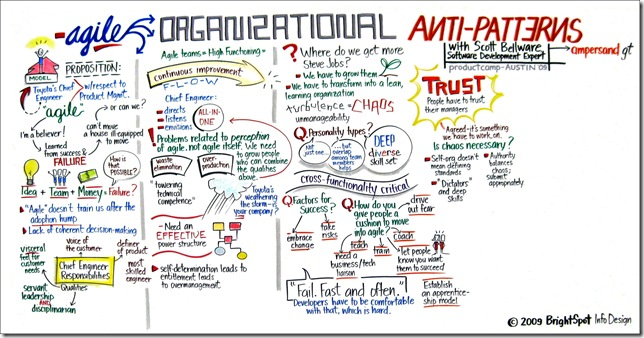 -agile ORGANIZATIONAL ANTI-PATTERNS
with Scott Bellware
Software Development Expert
ampersand gt
productcamp - AUSTIN 09
MODEL
PROPOSITION:
Toyota's Chief
Engineer
w/respect to
Product Mgmt.
"agile"
or can we?
I'm a believer!
can't move
a house ill-equipped
to move
Learned
from success &
FAILURE
How is
that
POSSIBLE?
Idea + Team + Money = Failure?
"Agile" doesn't train us after the
adoption hump
Lack of coherent decision-making
visceral
feel for
customer
needs
voice of
the customer
definer
of product
Chief Engineer
Responsibilities
most
skilled
engineer
Qualities
servant
leadership
AND
disciplinarian
Agile teams = High Functioning =
continuous improvement
F-L-O-W
Chief Engineer:
directs
listens
envisions
ALL-IN-
ONE
! Problems related to perception
of agile, not agile itself.
We need
to grow people
who can combine
the qualities
above.
waste
elimination
over-
production
"towering
technical
competence"
Toyota's
weathering
the storm-
your company?
Need an
EFFECTIVE
power structure
self-determination leads to
entitlement, leads to
overmanagement.
? Where do we get more
Steve Jobs?
We have to grow them
We have to transform into a lean,
learning organization
turbulence = CHAOS
unmanageability
Q Personality types?
Not just
one...
...but
overlap
among team
members
helps
DEEP
diverse
skill set
cross-functionality critical.
Q Factors for
Success?
embrace
change
take
risks
Q How do you
give people
a cushion to move
into agile?
drive
out fear
teach
train
coach
need a
business/tech
liaison
let people
know you want
them to succeed
"Fail. Fast and often."
Developers have to be comfortable
with that, which is hard.
Establish
an apprentice-
ship model
TRUST
People have to trust
their managers
Agreed-it's something
we have to work on.
Is chaos necessary?
Self-org doesn't
mean defining
standards
"Dictators"
and deep
skills
Authority
balances
chaos;
submit
appropriately
© 2009 BrightSpot Info Design